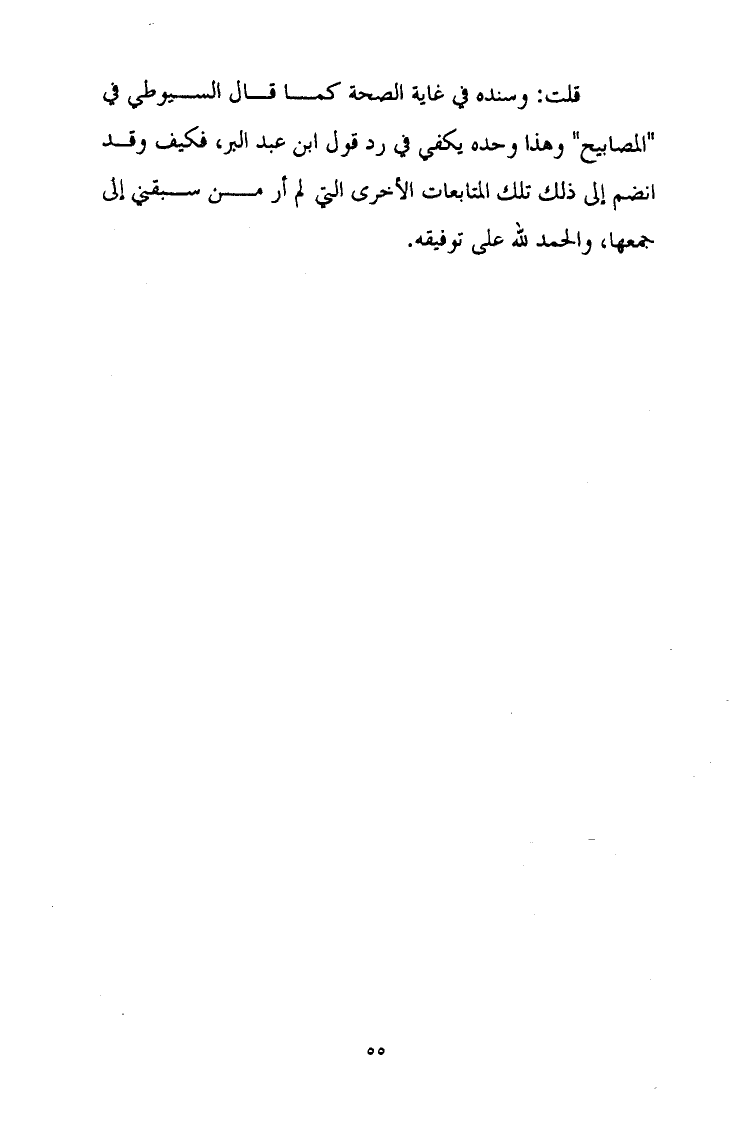 قلت: وسنده في غاية الصحة كمـــا قـــال الســـيوطي في
"المصابيح" وهذا وحده يكفي في رد قول ابن عبد البر، فكيف وقـــد
انضم إلى ذلك تلك المتابعات الأخرى التي لم أر مـــن ســـبقني إلى
جمعها، والحمد لله على توفيقه.
٥٥